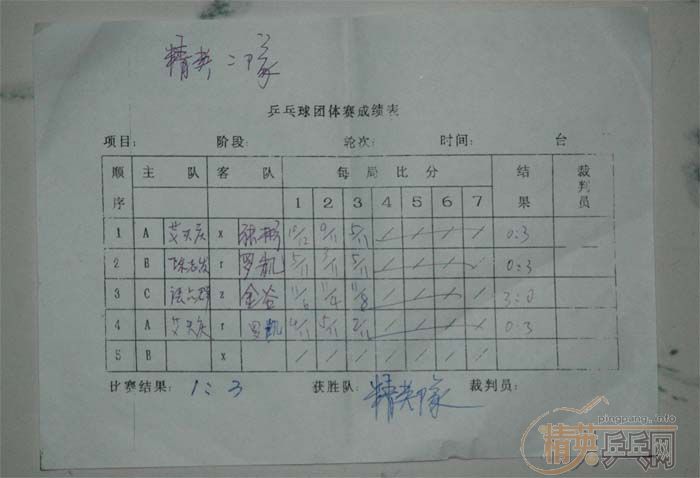 精英二隊
乒乓球团体赛成绩表
项目: 阶段: 轮次: 时间: 台
顺序 主队 客队 每局比分 结果 裁判员
1 2 3 4 5 6 7
1 A x 10/12 9/11 5/11 / / / / 0:3
2 B r 罗凯 5/11 7/11 5/11 / / / / 0:3
3 C z 11/6 11/4 11/8 / / / / 3:0
4 A r 罗凯 4/11 5/11 2/11 / / / / 0:3
5 B x / / / / / / /
比赛结果: 1:3 获胜队: 精英隊 裁判员:
pingpang.info
精英乒乓网